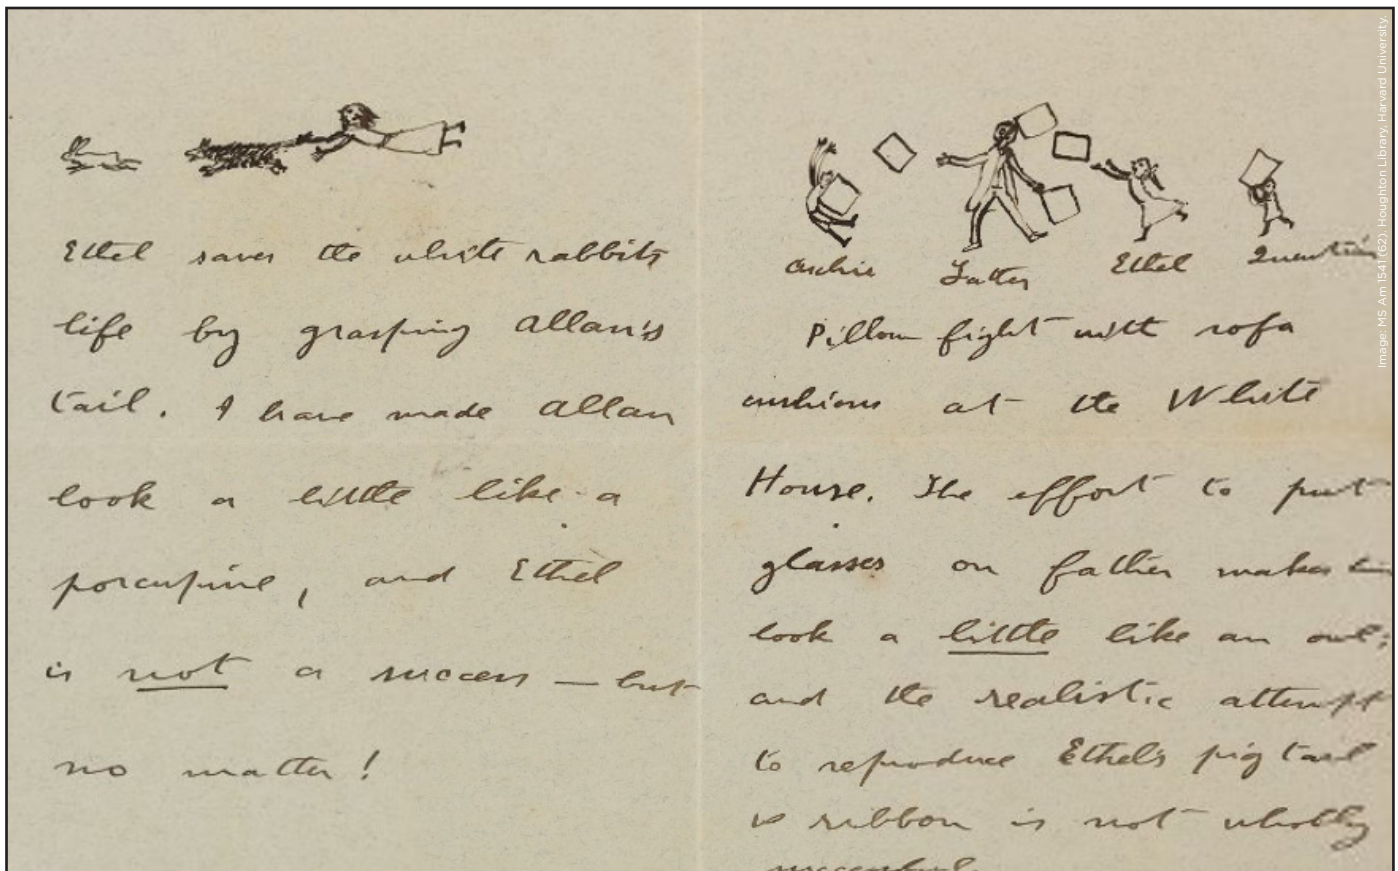 Ethel saves the white rabbits
life by grasping Allan's
tail. I have made Allan
look a little like a
porcupine, and Ethel
is not a success — but
no matter!
Archie Father Ethel Quentin
Pillow fight with sofa
cushions at the White
House. The effort to put
glasses on father makes him
look a little like an owl;
and the realistic attempt
to reproduce Ethel's pig tail
ribbon is not wholly
successful.
Image: MS Am 1541 (62). Houghton Library, Harvard University.